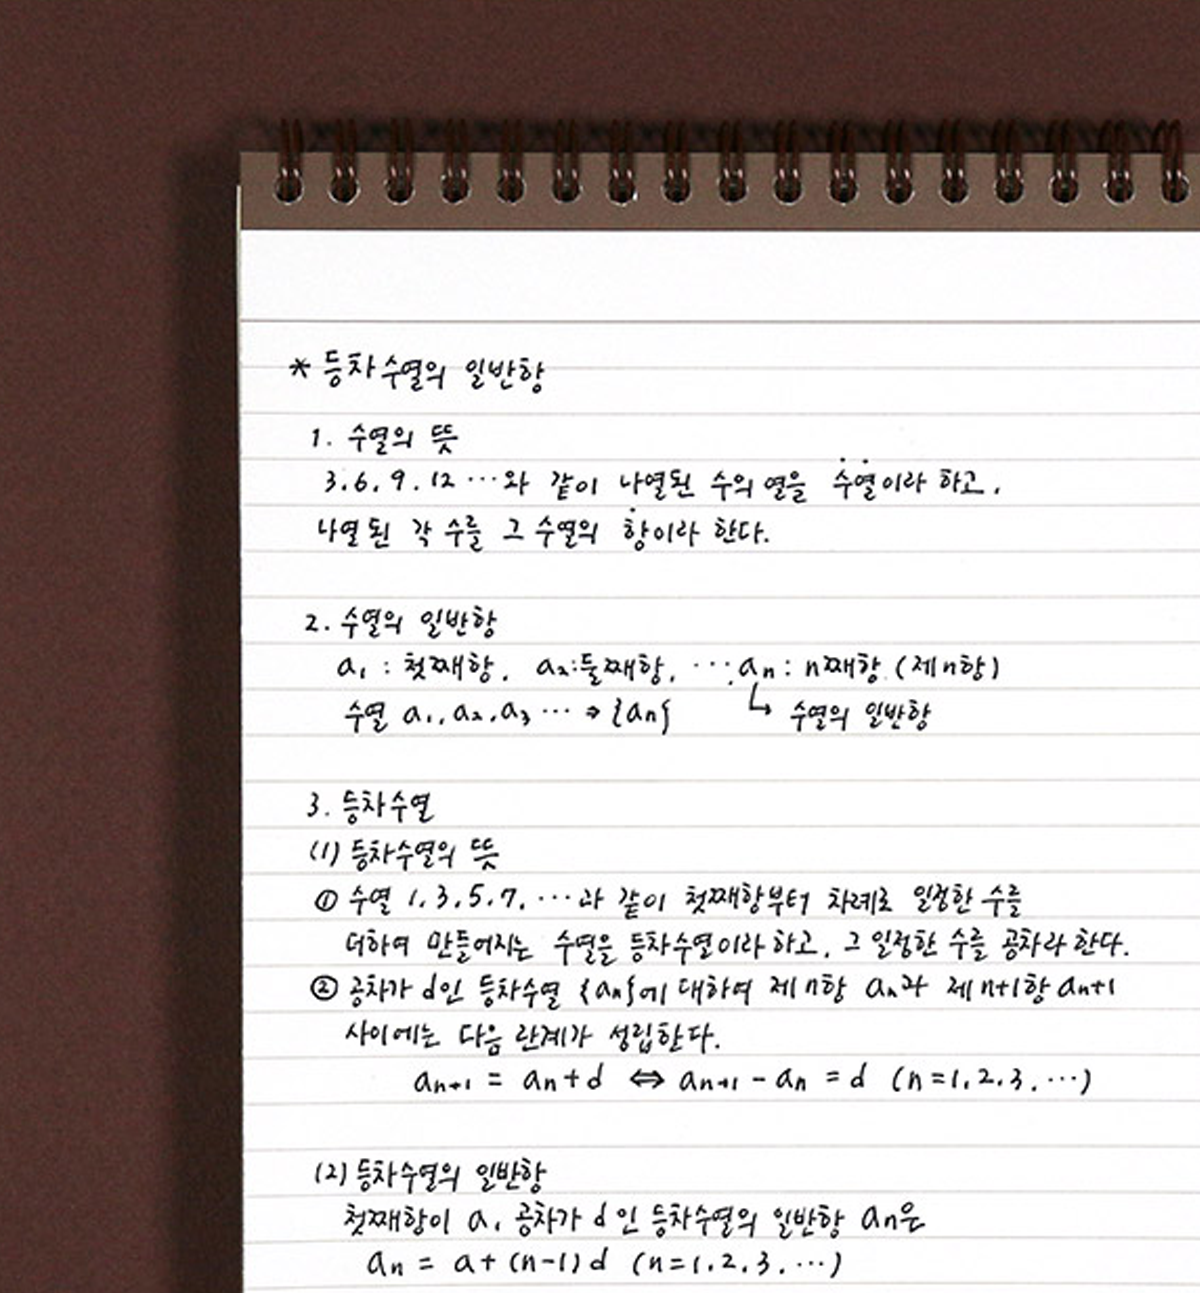 * 등차수열의 일반항
1. 수열의 뜻
3. 6. 9. 12 …와 같이 나열된 수의 열을 수열이라 하고,
나열된 각 수를 그 수열의 항이라 한다.
2. 수열의 일반항
a₁ : 첫째항, a₂:둘째항, … , aₙ : n째항 (제n항)
수열 a₁, a₂, a₃ … ⇒ {aₙ} ↳ 수열의 일반항
3. 등차수열
(1) 등차수열의 뜻
① 수열 1, 3, 5, 7, …과 같이 첫째항부터 차례로 일정한 수를
더하여 만들어지는 수열을 등차수열이라 하고, 그 일정한 수를 공차라 한다.
② 공차가 d인 등차수열 {aₙ}에 대하여 제n항 aₙ과 제n+1항 aₙ₊₁
사이에는 다음 관계가 성립한다.
aₙ₊₁ = aₙ + d ⇔ aₙ₊₁ - aₙ = d (n=1, 2, 3, …)
(2) 등차수열의 일반항
첫째항이 a, 공차가 d인 등차수열의 일반항 aₙ은
aₙ = a + (n-1) d (n=1, 2, 3, …)